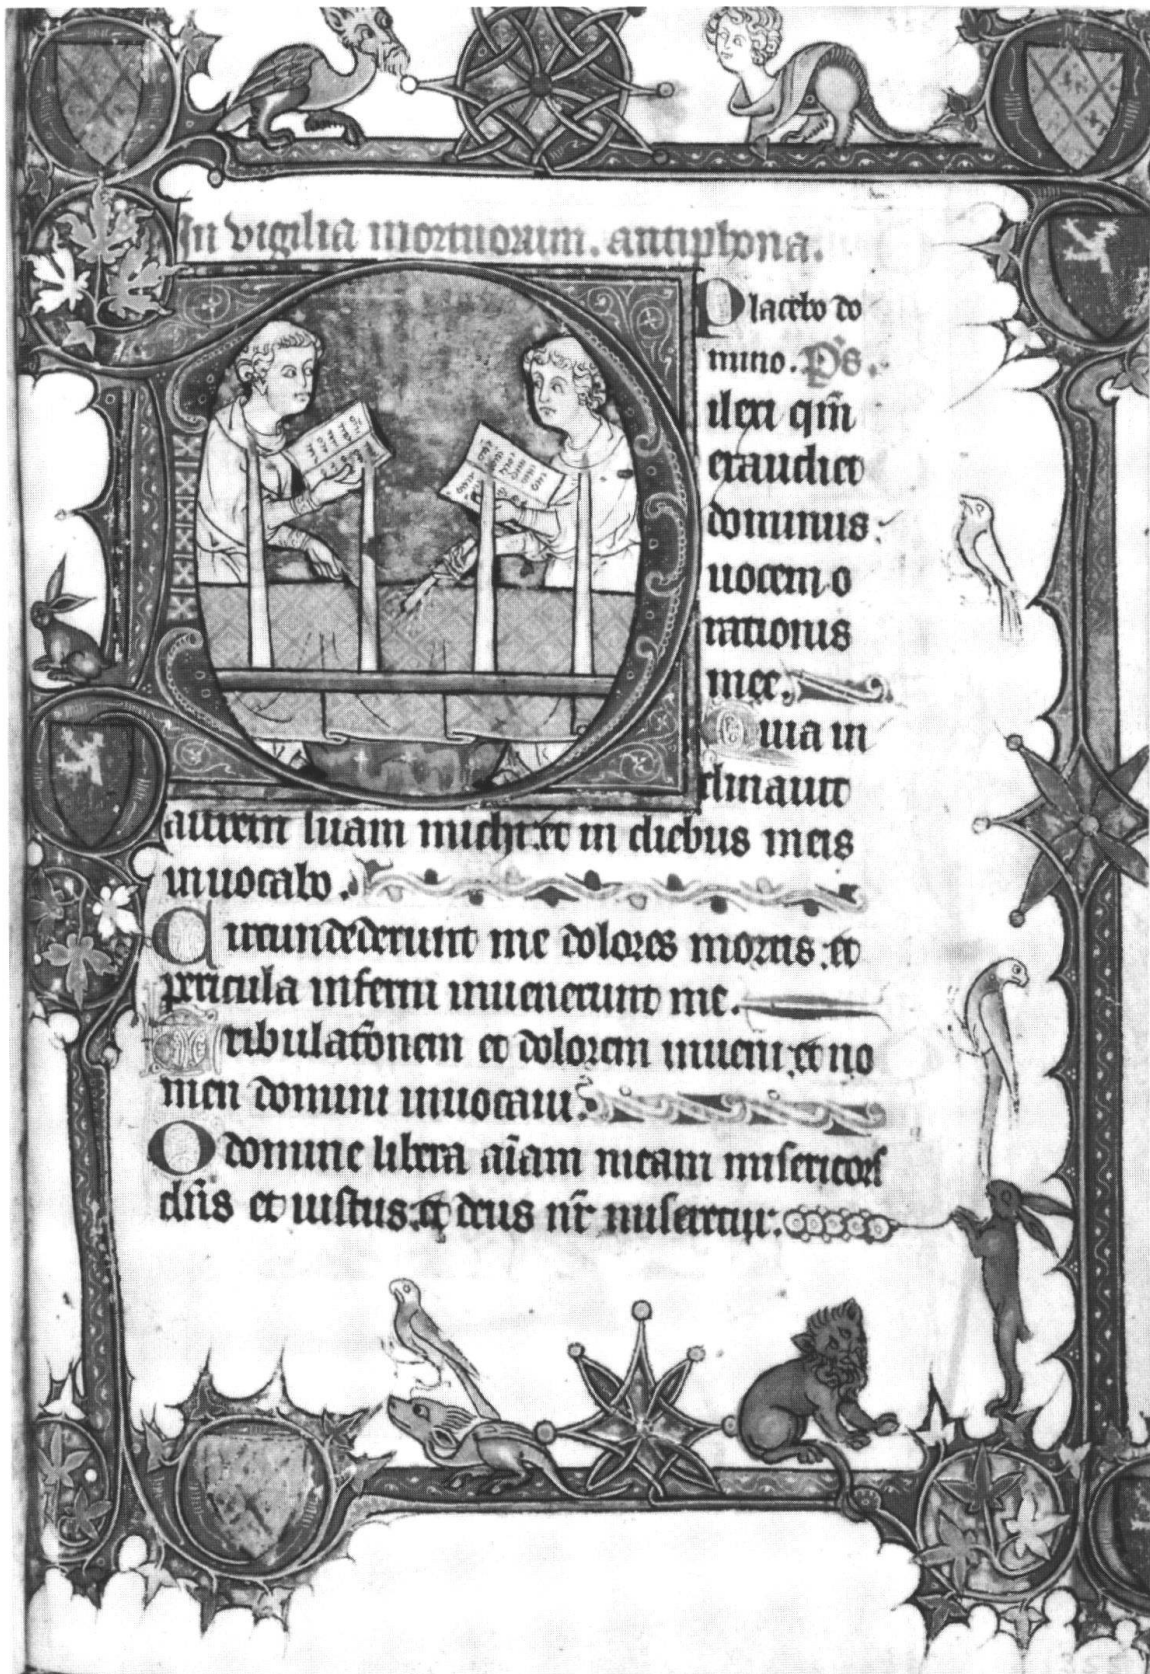 In vigilia mortuorum. antiphona.
Placebo do
mino. Ps.
ilexi qm̄
exaudiet
dominus
uocem o
rationis
mee.
Quia in
clinauit
aurem suam michi: et in diebus meis
inuocabo.
Circumdederunt me dolores mortis: et
pericula inferni inuenerunt me.
Tribulat̄onem et dolorem inueni: et no
men domini inuocaui.
O domine libera aīam meam misericors
dn̄s et iustus: et deus nr̄ miseretur.